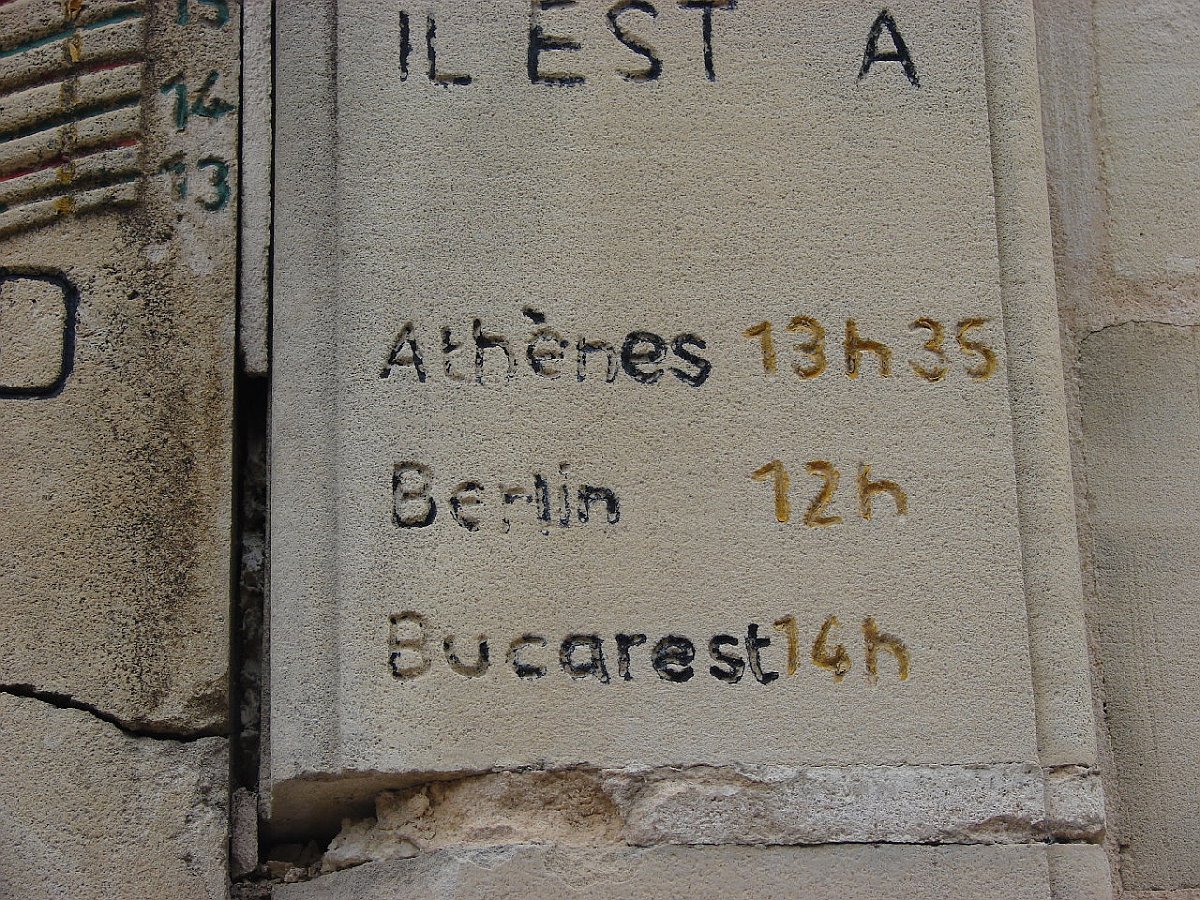 15
14
13
IL EST A
Athènes 13h35
Berlin 12h
Bucarest 14h